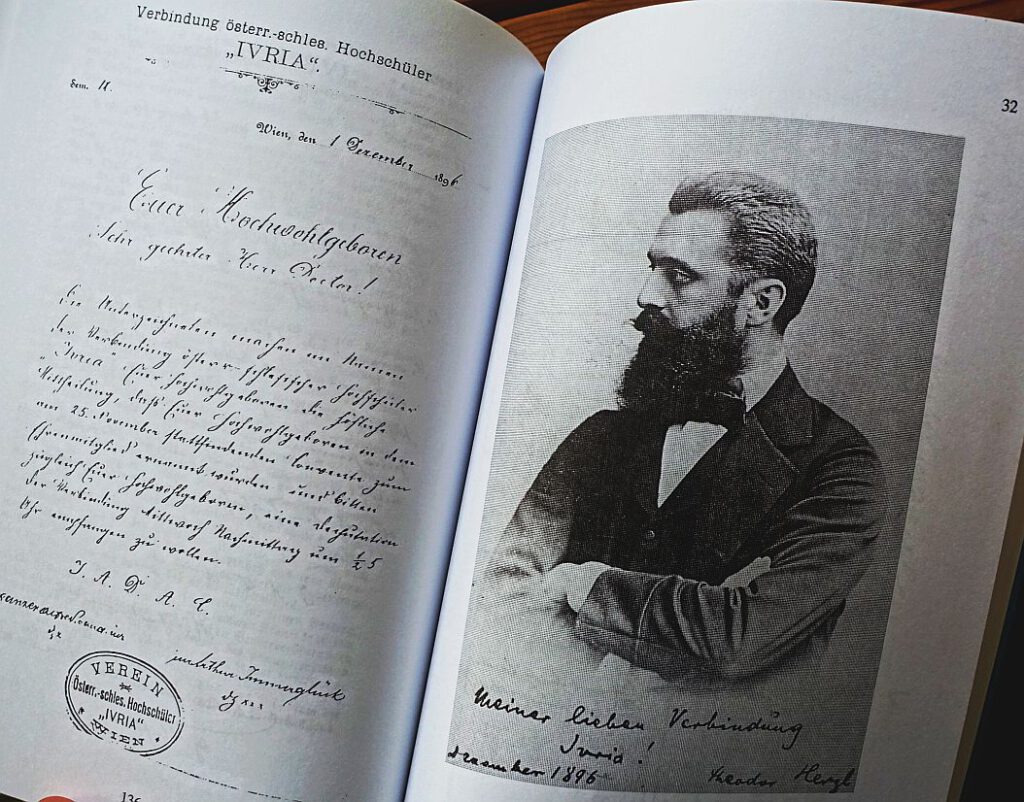 Verbindung österr.-schles. Hochschüler
„IVRIA“.
Sem. II.
Wien, den 1 Dezember 1896
Euer Hochwohlgeboren
Sehr geehrter Herr Doctor!
Die Unterzeichneten machen im Namen
der Verbindung österr-schlesischer Hochschüler
„Ivria“ Euer Hochwohlgeboren die höfliche
Mittheilung, daß Euer Hochwohlgeboren in dem
am 25. November stattfindenden Convente zum
Ehrenmitglied ernannt wurden und bitten
zugleich Euer Hochwohlgeboren, eine Deputation
der Verbindung Mittwoch Nachmittag um ½ 5
Uhr empfangen zu wollen.
I. A. D. A. C.
xxx
VEREIN
Österr.-schles. Hochschüler
„IVRIA“
WIEN
136
32
Meiner lieben Verbindung
Ivria!
Dezember 1896
Theodor Herzl